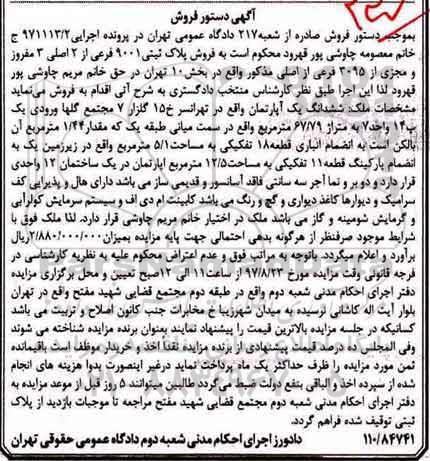 آگهی دستور فروش
بموجب دستور فروش صادره از شعبه۲۱۷ دادگاه عمومی تهران در پرونده اجرایی۹۷۱۱۱۳/۲ ج
خانم معصومه چاوشی پور قهرود محکوم است به فروش پلاک ثبتی۹۰۰۱ فرعی از ۲ اصلی ۳ مفروز
و مجزی از ۲۰۹۵ فرعی از اصلی مذکور واقع در بخش۱۰ تهران در حق خانم مریم چاوشی پور
قهرود لذا این اجرا طبق نظر کارشناس منتخب دادگستری به شرح آتی اقدام به فروش می‌نماید
مشخصات ملک: ششدانگ یک آپارتمان واقع در تهرانسر خ۱۵ گلزار ۷ مجتمع گلها ورودی یک
ب۱۴ واحد۷ به متراژ ۶۷/۷۹ مترمربع واقع در سمت میانی طبقه یک که مقدار۱/۴۴ مترمربع آن
بالکن است به انضمام انباری قطعه۱۸ تفکیکی به مساحت۵/۱ مترمربع واقع در زیرزمین یک به
انضمام پارکینگ قطعه۱۱ تفکیکی به مساحت۱۲/۵ مترمربع اپارتمان در یک ساختمان ۱۲ واحدی
قرار دارد و دو بر و نما آجر سه سانتی فاقد آسانسور و قدیمی ساز می باشد دارای هال و پذیرایی کف
سرامیک و دیوارها کاغذ دیواری و گچ و رنگ می باشد کابینت ام دی اف و سیستم سرمایش کولرآبی
و گرمایش شومینه و گاز می باشد ملک در اختیار خانم مریم چاوشی قرار دارد. لذا ملک فوق با
شرایط موجود صرفنظر از هرگونه بدهی احتمالی جهت پایه مزایده بمیزان۲/۸۸۰/۰۰۰/۰۰۰ریال
برآورد و اعلام میگردد. باتوجه به مراتب فوق و عدم اعتراض محکوم علیه به نظریه کارشناسی در
فرجه قانونی وقت مزایده مورخ ۹۷/۸/۲۳ از ساعت۱۱ الی ۱۲صبح تعیین و محل برگزاری مزایده
دفتر اجرای احکام مدنی شعبه دوم واقع در طبقه دوم مجتمع قضایی شهید مفتح واقع در تهران
بلوار آیت اله کاشانی نرسیده به میدان شهرزیبا خ مخابرات جنب کانون اصلاح و تربیت می باشد
کسانیکه در جلسه مزایده بالاترین قیمت را پیشنهاد نمایند بعنوان برنده مزایده شناخته می شوند
وفی المجلس ده درصد قیمت پیشنهادی از برنده مزایده نقداً اخذ و خریدار موظف است باقیمانده
ثمن مورد مزایده را ظرف حداکثر یک ماه پرداخت نماید درغیر اینصورت بدوا هزینه های انجام
شده از سپرده اخذ و الباقی بنفع دولت ضبط می‌گردد طالبین میتوانند ۵ روز قبل از موعد مزایده به
دفتر اجرای احکام مدنی شعبه دوم مجتمع قضایی شهید مفتح مراجعه تا موجبات بازدید از پلاک
ثبتی توقیف شده فراهم گردد.
۱۱۰/۸۴۷۴۱ دادورز اجرای احکام مدنی شعبه دوم دادگاه عمومی حقوقی تهران